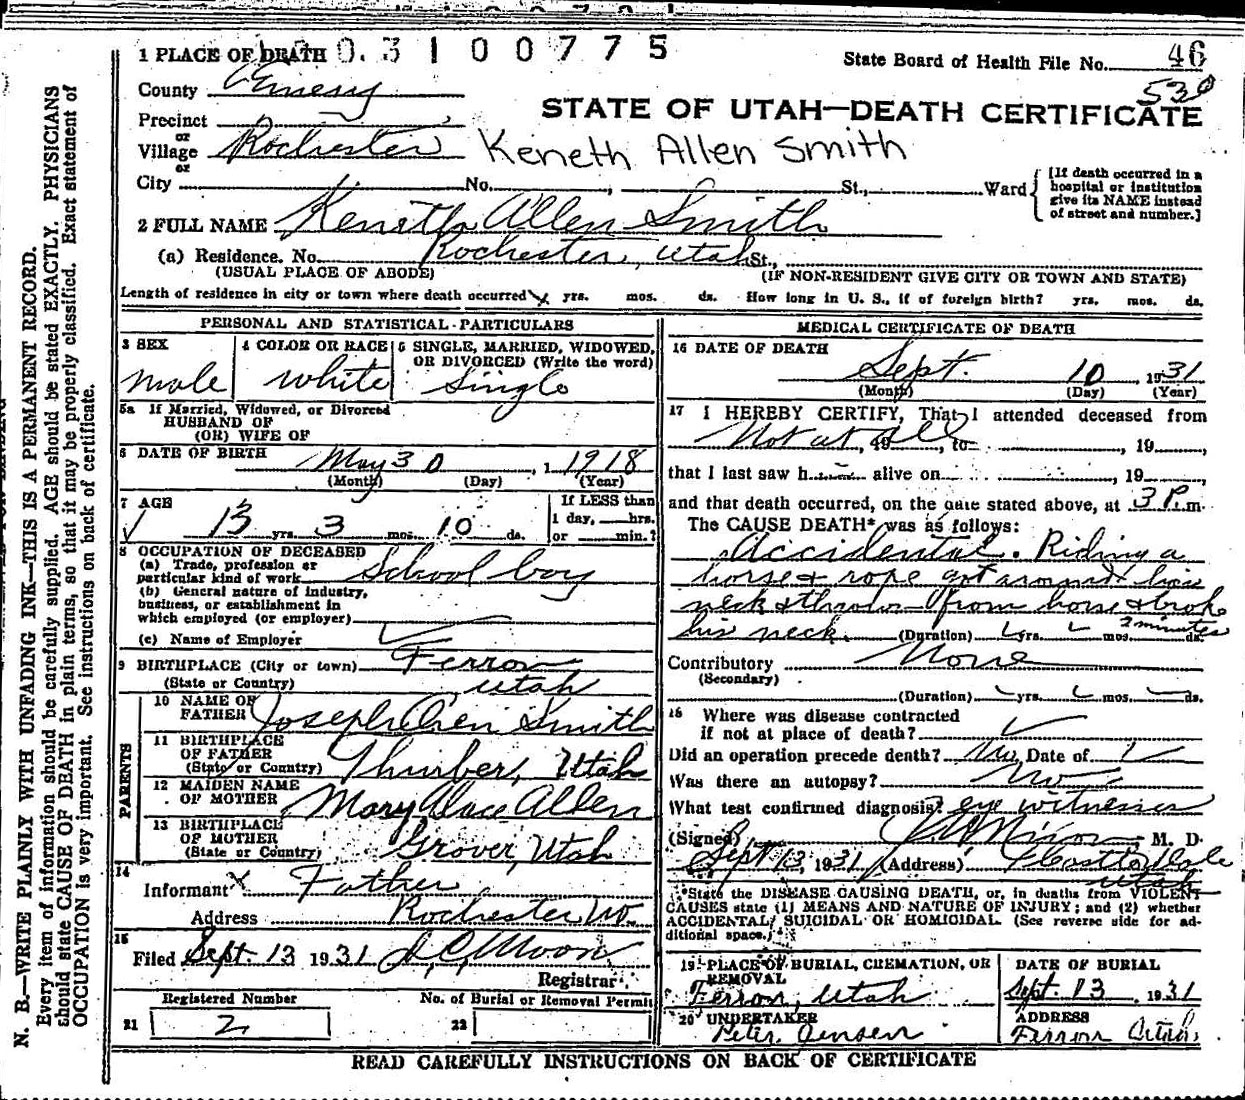 1 PLACE OF DEATH 0.3100775
State Board of Health File No. 46
County Emery
530
STATE OF UTAH—DEATH CERTIFICATE
Precinct
or
Village Rochester Keneth Allen Smith
or
City No. , St., Ward
[If death occurred in a hospital or institution give its NAME instead of street and number.]
2 FULL NAME Keneth Allen Smith
(a) Residence. No. Rochester, Utah St.,
(USUAL PLACE OF ABODE) (IF NON-RESIDENT GIVE CITY OR TOWN AND STATE)
Length of residence in city or town where death occurred yrs. mos. ds. How long in U. S., if of foreign birth? yrs. mos. ds.
PERSONAL AND STATISTICAL PARTICULARS
3 SEX
male
4 COLOR OR RACE
white
5 SINGLE, MARRIED, WIDOWED,
OR DIVORCED (Write the word)
Single
5a If Married, Widowed, or Divorced
HUSBAND OF
(OR) WIFE OF
6 DATE OF BIRTH May 30, 1 1918
(Month) (Day) (Year)
7 AGE
13 yrs. 3 mos. 10 ds.
If LESS than
1 day, hrs.
or min.?
8 OCCUPATION OF DECEASED
(a) Trade, profession or
particular kind of work School boy
(b) General nature of industry,
business, or establishment in
which employed (or employer)
(c) Name of Employer
9 BIRTHPLACE (City or town) Ferron
(State or Country) Utah
PARENTS
10 NAME OF
FATHER Joseph Smith
11 BIRTHPLACE
OF FATHER
(State or Country) Thurber, Utah
12 MAIDEN NAME
OF MOTHER Mary Alace Allen
13 BIRTHPLACE
OF MOTHER
(State or Country) Grover, Utah
14
Informant Father
Address Rochester Ut.
15
Filed Sept. 13 1931 Moon
Registrar
Registered Number
21 2
No. of Burial or Removal Permit
22
MEDICAL CERTIFICATE OF DEATH
16 DATE OF DEATH
Sept. 10, 1931
(Month) (Day) (Year)
17 I HEREBY CERTIFY, That I attended deceased from
Not at all, 19 , to , 19 ,
that I last saw h alive on , 19 ,
and that death occurred, on the date stated above, at 3 P. m.
The CAUSE DEATH* was as follows:
Accidental. Riding a
horse & rope got around his
neck & thrown from horse & broke
his neck. (Duration) yrs. mos. 2 minutes ds.
Contributory None
(Secondary)
(Duration) yrs. mos. ds.
18 Where was disease contracted
if not at place of death?
Did an operation precede death? No Date of
Was there an autopsy? No
What test confirmed diagnosis? eye witnesses
(Signed) Nixon M. D.
Sept 13, 1931 (Address) Castle Dale
Utah
*State the DISEASE CAUSING DEATH, or, in deaths from VIOLENT
CAUSES state (1) MEANS AND NATURE OF INJURY; and (2) whether
ACCIDENTAL, SUICIDAL OR HOMICIDAL. (See reverse side for ad-
ditional space.)
19 PLACE OF BURIAL, CREMATION, OR
REMOVAL
Ferron, Utah
DATE OF BURIAL
Sept. 13, 1931
20 UNDERTAKER
Peter Jensen
ADDRESS
Ferron Utah
READ CAREFULLY INSTRUCTIONS ON BACK OF CERTIFICATE
N. B.—WRITE PLAINLY WITH UNFADING INK—THIS IS A PERMANENT RECORD.
Every item of information should be carefully supplied. AGE should be stated EXACTLY. PHYSICIANS
should state CAUSE OF DEATH in plain terms, so that it may be properly classified. Exact statement of
OCCUPATION is very important. See instructions on back of certificate.